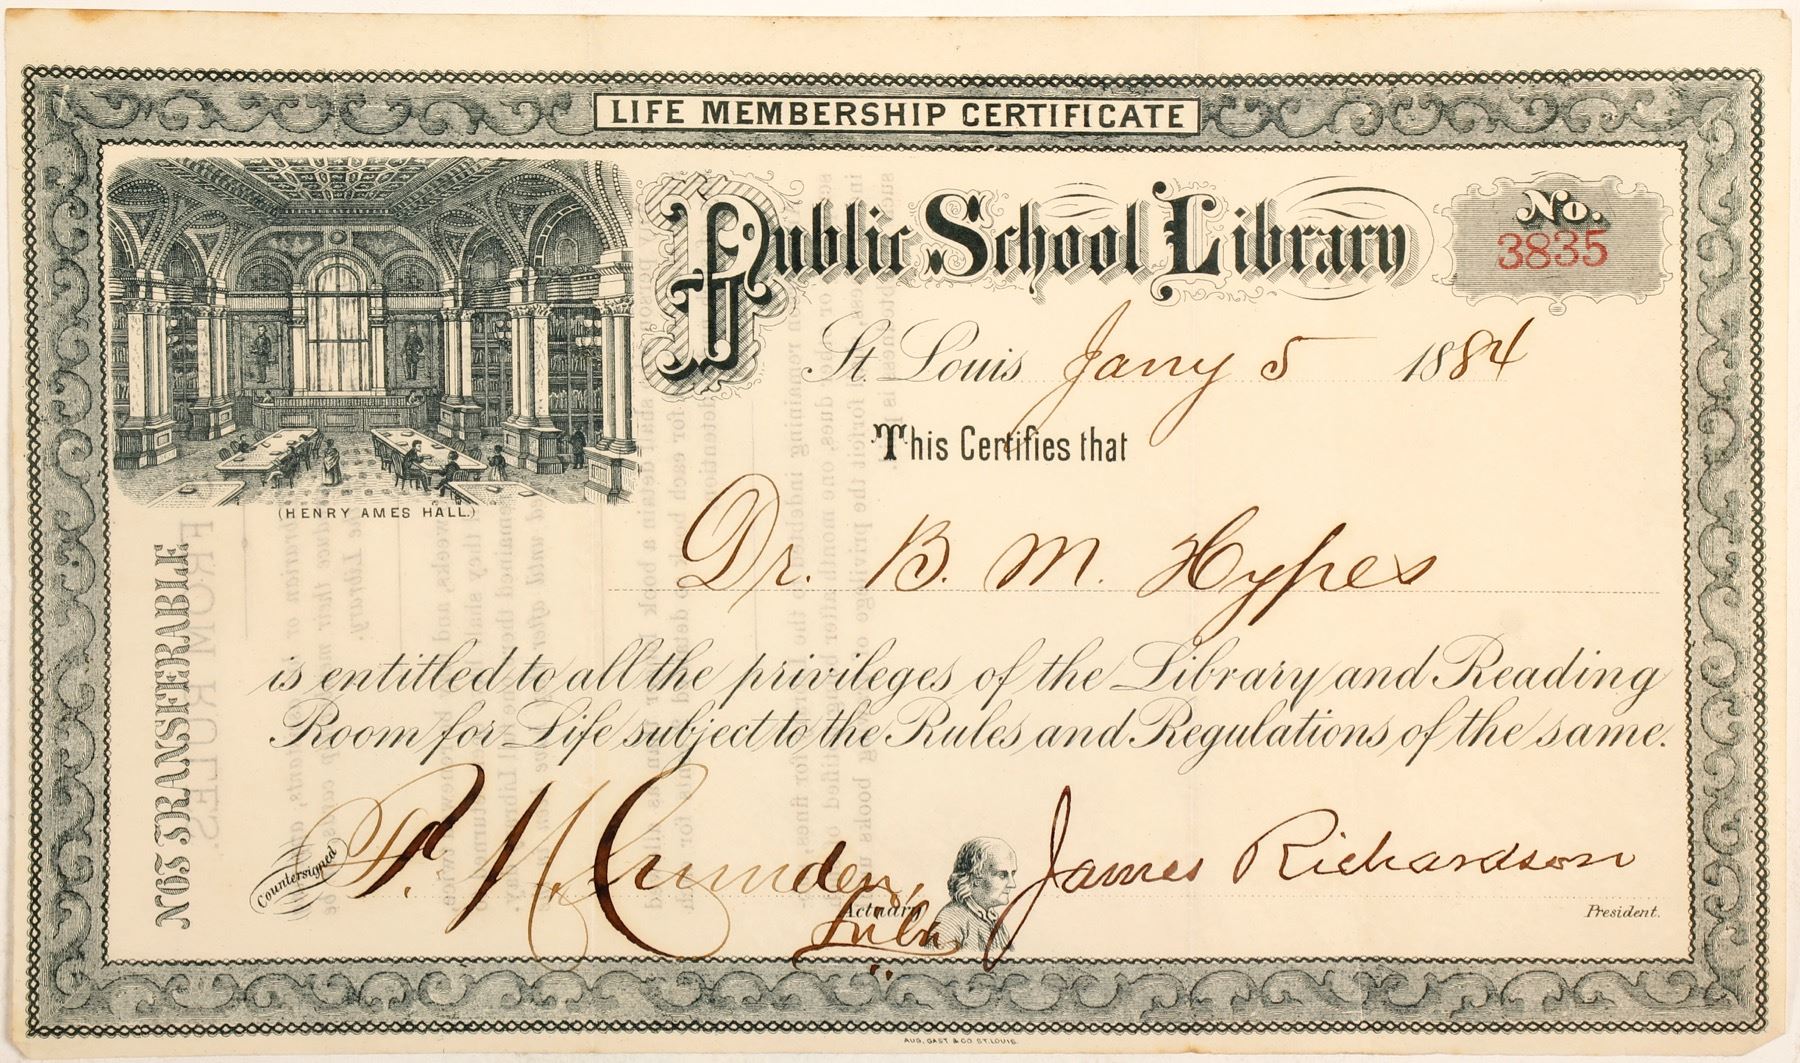 LIFE MEMBERSHIP CERTIFICATE
Public School Library
No.
3835
St. Louis Jany 5 1884
(HENRY AMES HALL.)
This Certifies that
Dr. B. M. Hypes
is entitled to all the privileges of the Library and Reading
Room for Life subject to the Rules and Regulations of the same.
NOT TRANSFERABLE
Countersigned F. M. Crunden,
Actuary
Libn
James Richardson
President.
AUG. GAST & CO. ST. LOUIS.